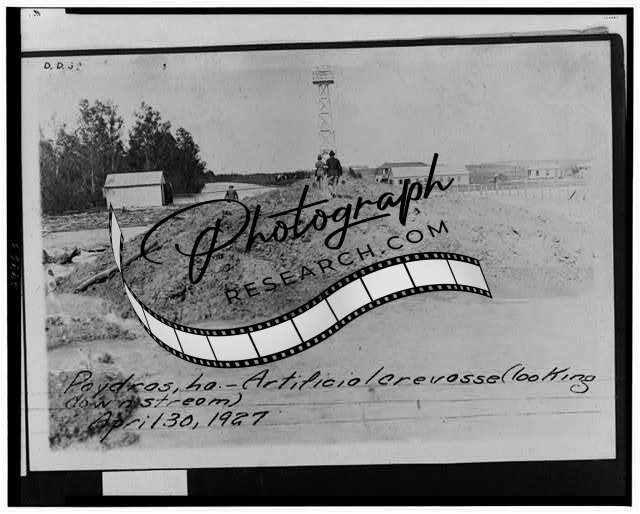 D.D.S?
Photograph
RESEARCH.COM
Poydras, La. - Artificial crevasse (looking
down stream)
April 30, 1927